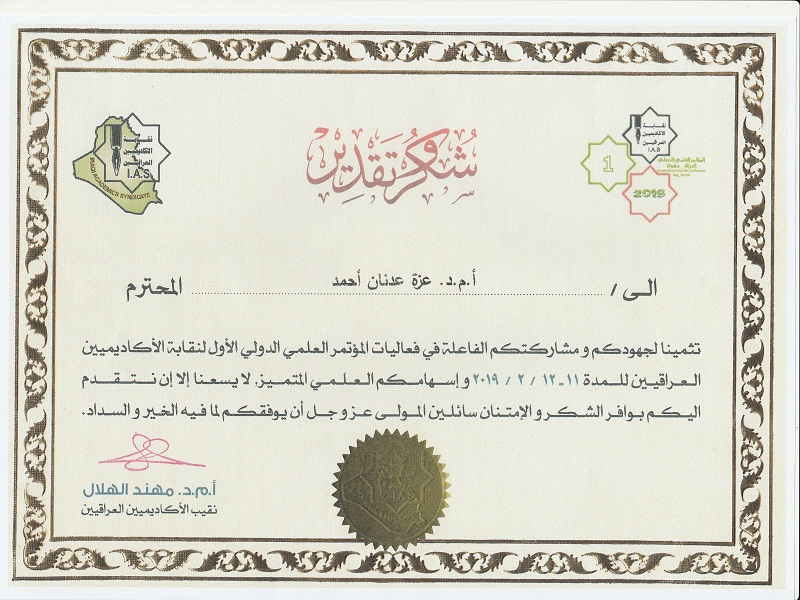 نقابة
الاكاديميين
العراقيين
I.A.S
IRAQI ACADEMICS SYNDICATE
شكر وتقدير
نقابة
الاكاديميين
العراقيين
I.A.S
المؤتمر العلمي الدولي
1
2019
الى / أ.م.د. عزة عدنان أحمد المحترم
تثمينا لجهودكم و مشاركتكم الفاعلة في فعاليات المؤتمر العلمي الدولي الأول لنقابة الأكاديميين
العراقيين للمدة ١١-١٢ / ٢ / ٢٠١٩ و إسهامكم العلمي المتميز, لا يسعنا إلا إن نتقدم
اليكم بوافر الشكر و الإمتنان سائلين المولى عز و جل أن يوفقكم لما فيه الخير و السداد.
أ.م.د. مهند الهلال
نقيب الأكاديميين العراقيين